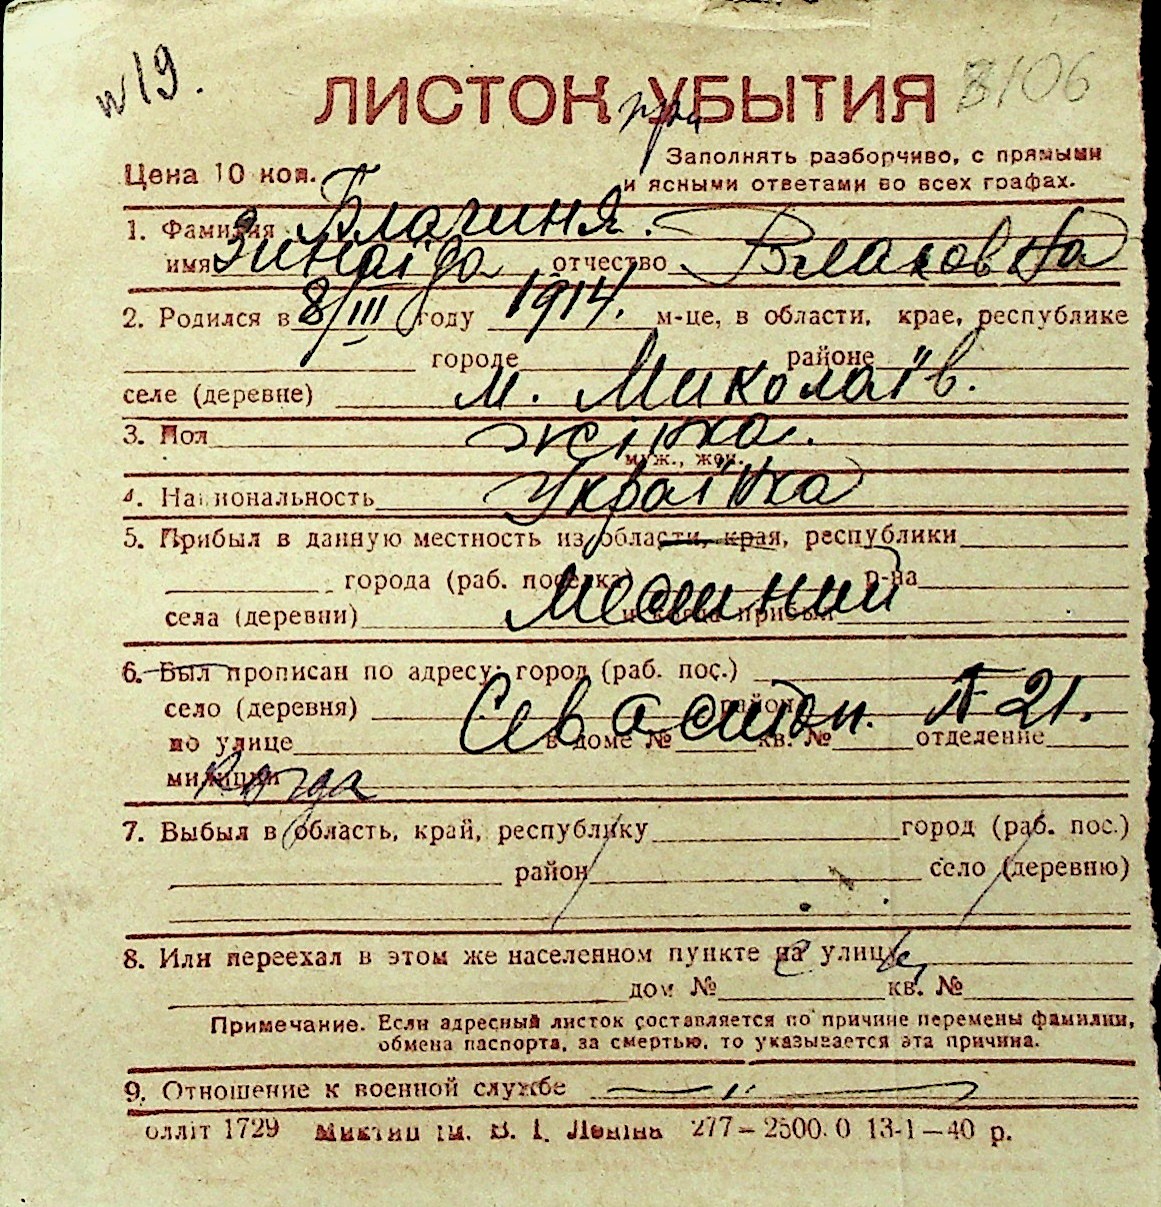 №19.
ЛИСТОК УБЫТИЯ 3106
при
Цена 10 коп.
Заполнять разборчиво, с прямыми
и ясными ответами во всех графах.
1. Фамилия
имя Зинаїда отчество Власовна
2. Родился в 8/III году 1914. м-це, в области, крае, республике
городе районе
селе (деревне) м. Миколаїв.
3. Пол жінка.
муж., жен.
4. Национальность Українка
5. Прибыл в данную местность из области, края, республики
города (раб. поселка) р-на
села (деревни) и когда прибыл
6. Был прописан по адресу: город (раб. пос.)
село (деревня) Севастоп. 21. район
по улице в доме № кв. № отделение
милиции когда
7. Выбыл в область, край, республику город (раб. пос.)
район село (деревню)
8. Или переехал в этом же населенном пункте на улицу
дом № кв. №
Примечание. Если адресный листок составляется по причине перемены фамилии,
обмена паспорта, за смертью, то указывается эта причина.
9. Отношение к военной службе
олліт 1729 ім. В. І. Леніна 277—2500.0 13-1—40 р.